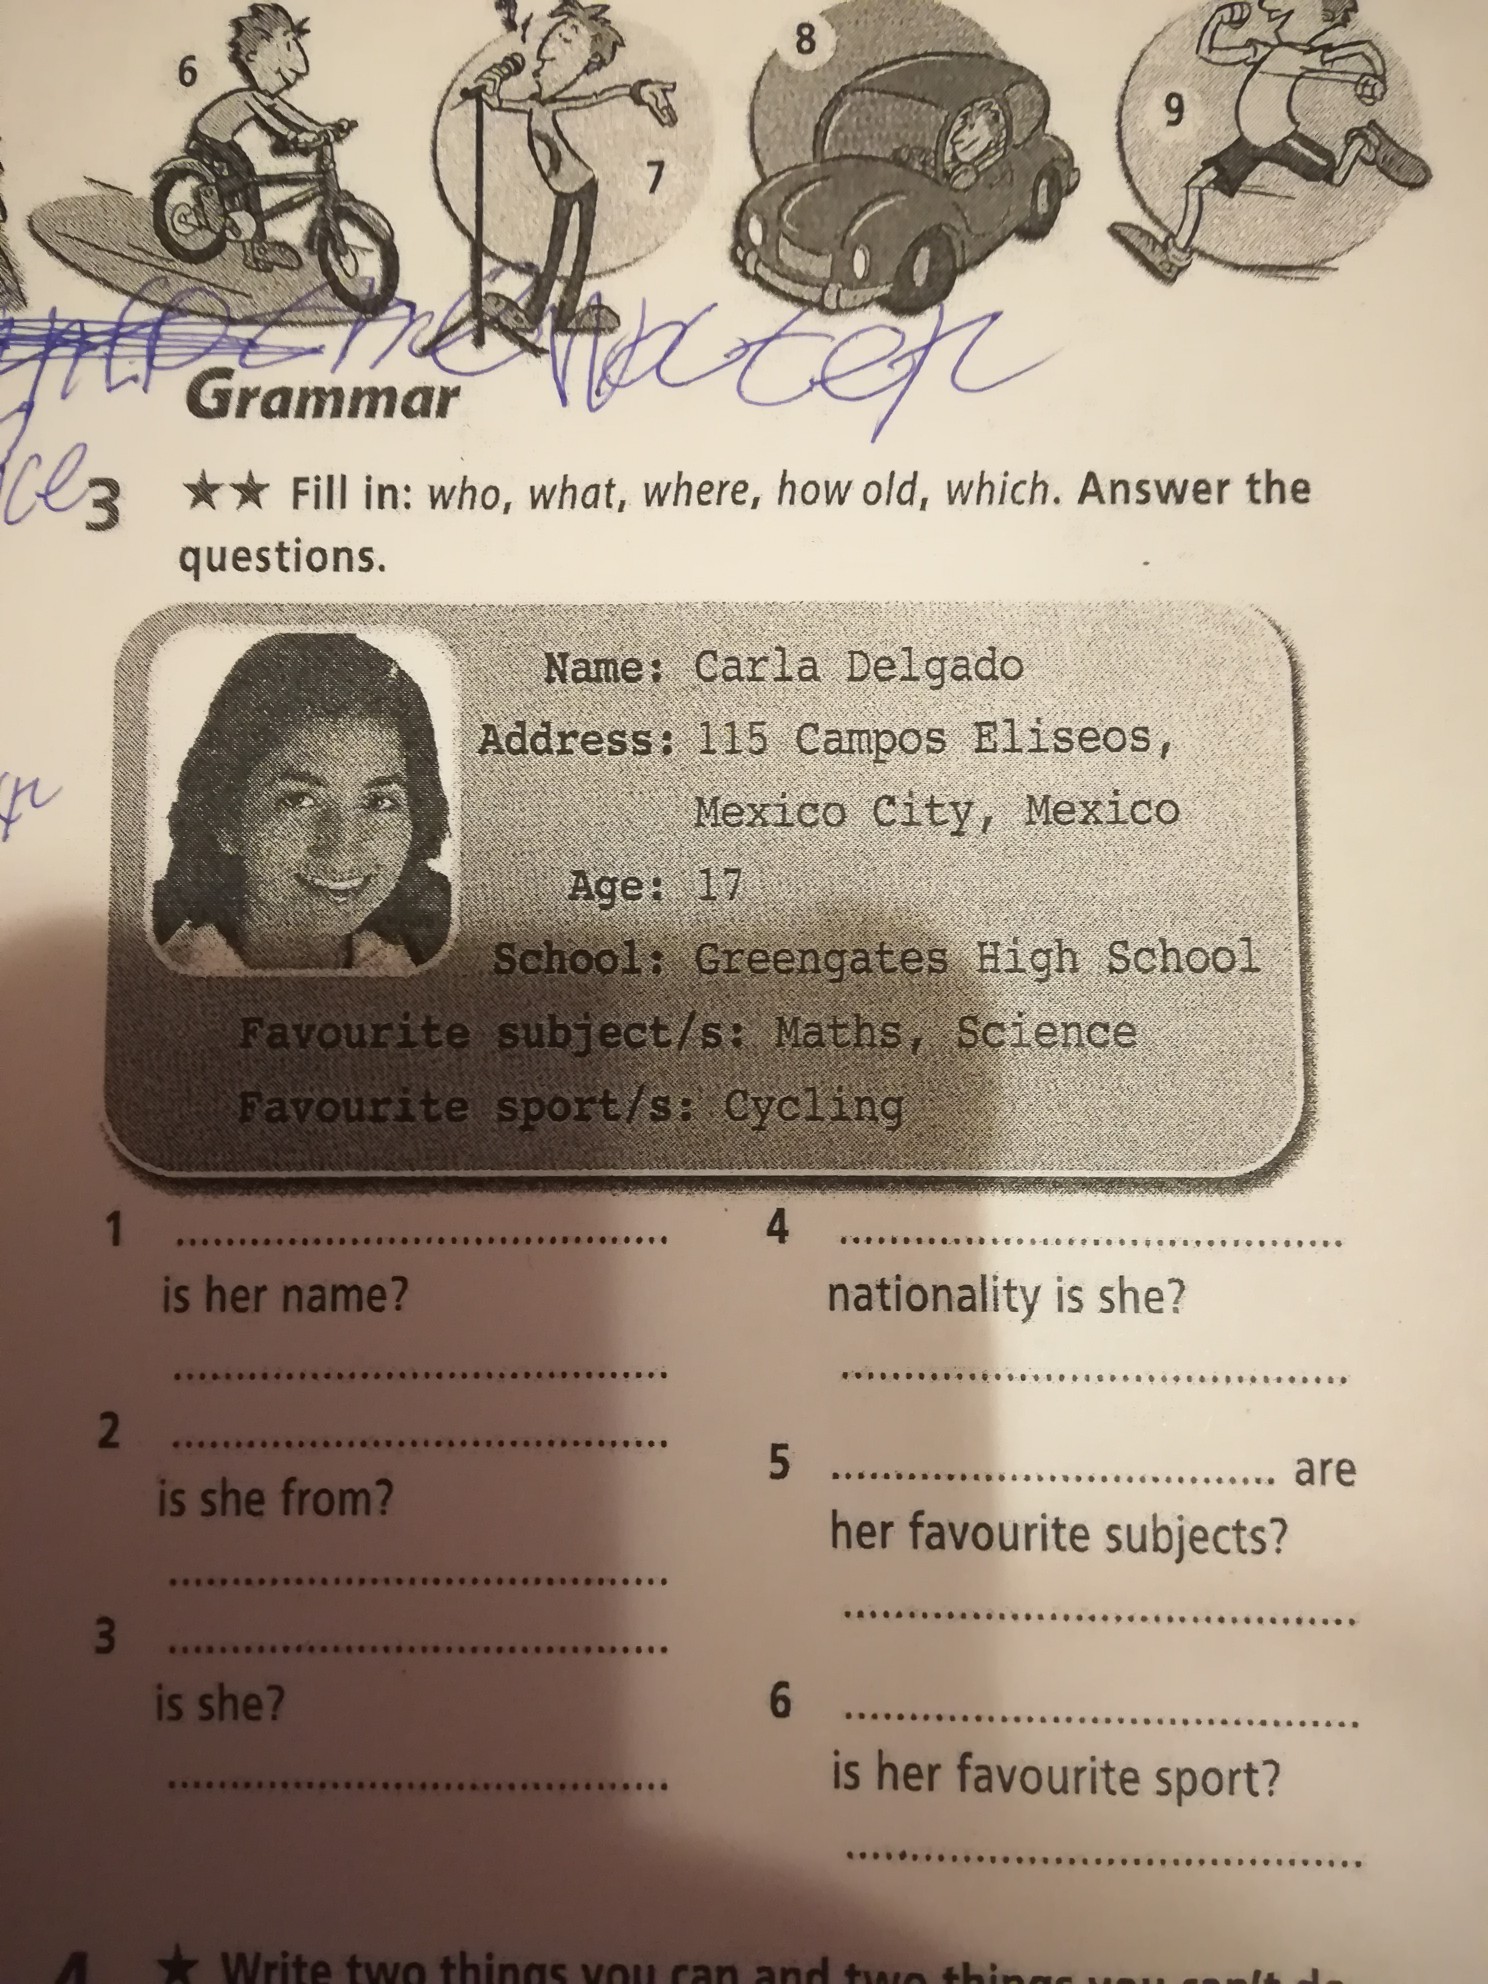 6
7
8
9
Grammar
3 ★★ Fill in: who, what, where, how old, which. Answer the
questions.
Name: Carla Delgado
Address: 115 Campos Eliseos,
Mexico City, Mexico
Age: 17
School: Greengates High School
Favourite subject/s: Maths, Science
Favourite sport/s: Cycling
1 ........................................
is her name?
........................................
2 ........................................
is she from?
........................................
3 ........................................
is she?
........................................
4 ........................................
nationality is she?
........................................
5 ........................................ are
her favourite subjects?
........................................
6 ........................................
is her favourite sport?
........................................
4 ★ Write two things you can and two things you can't do